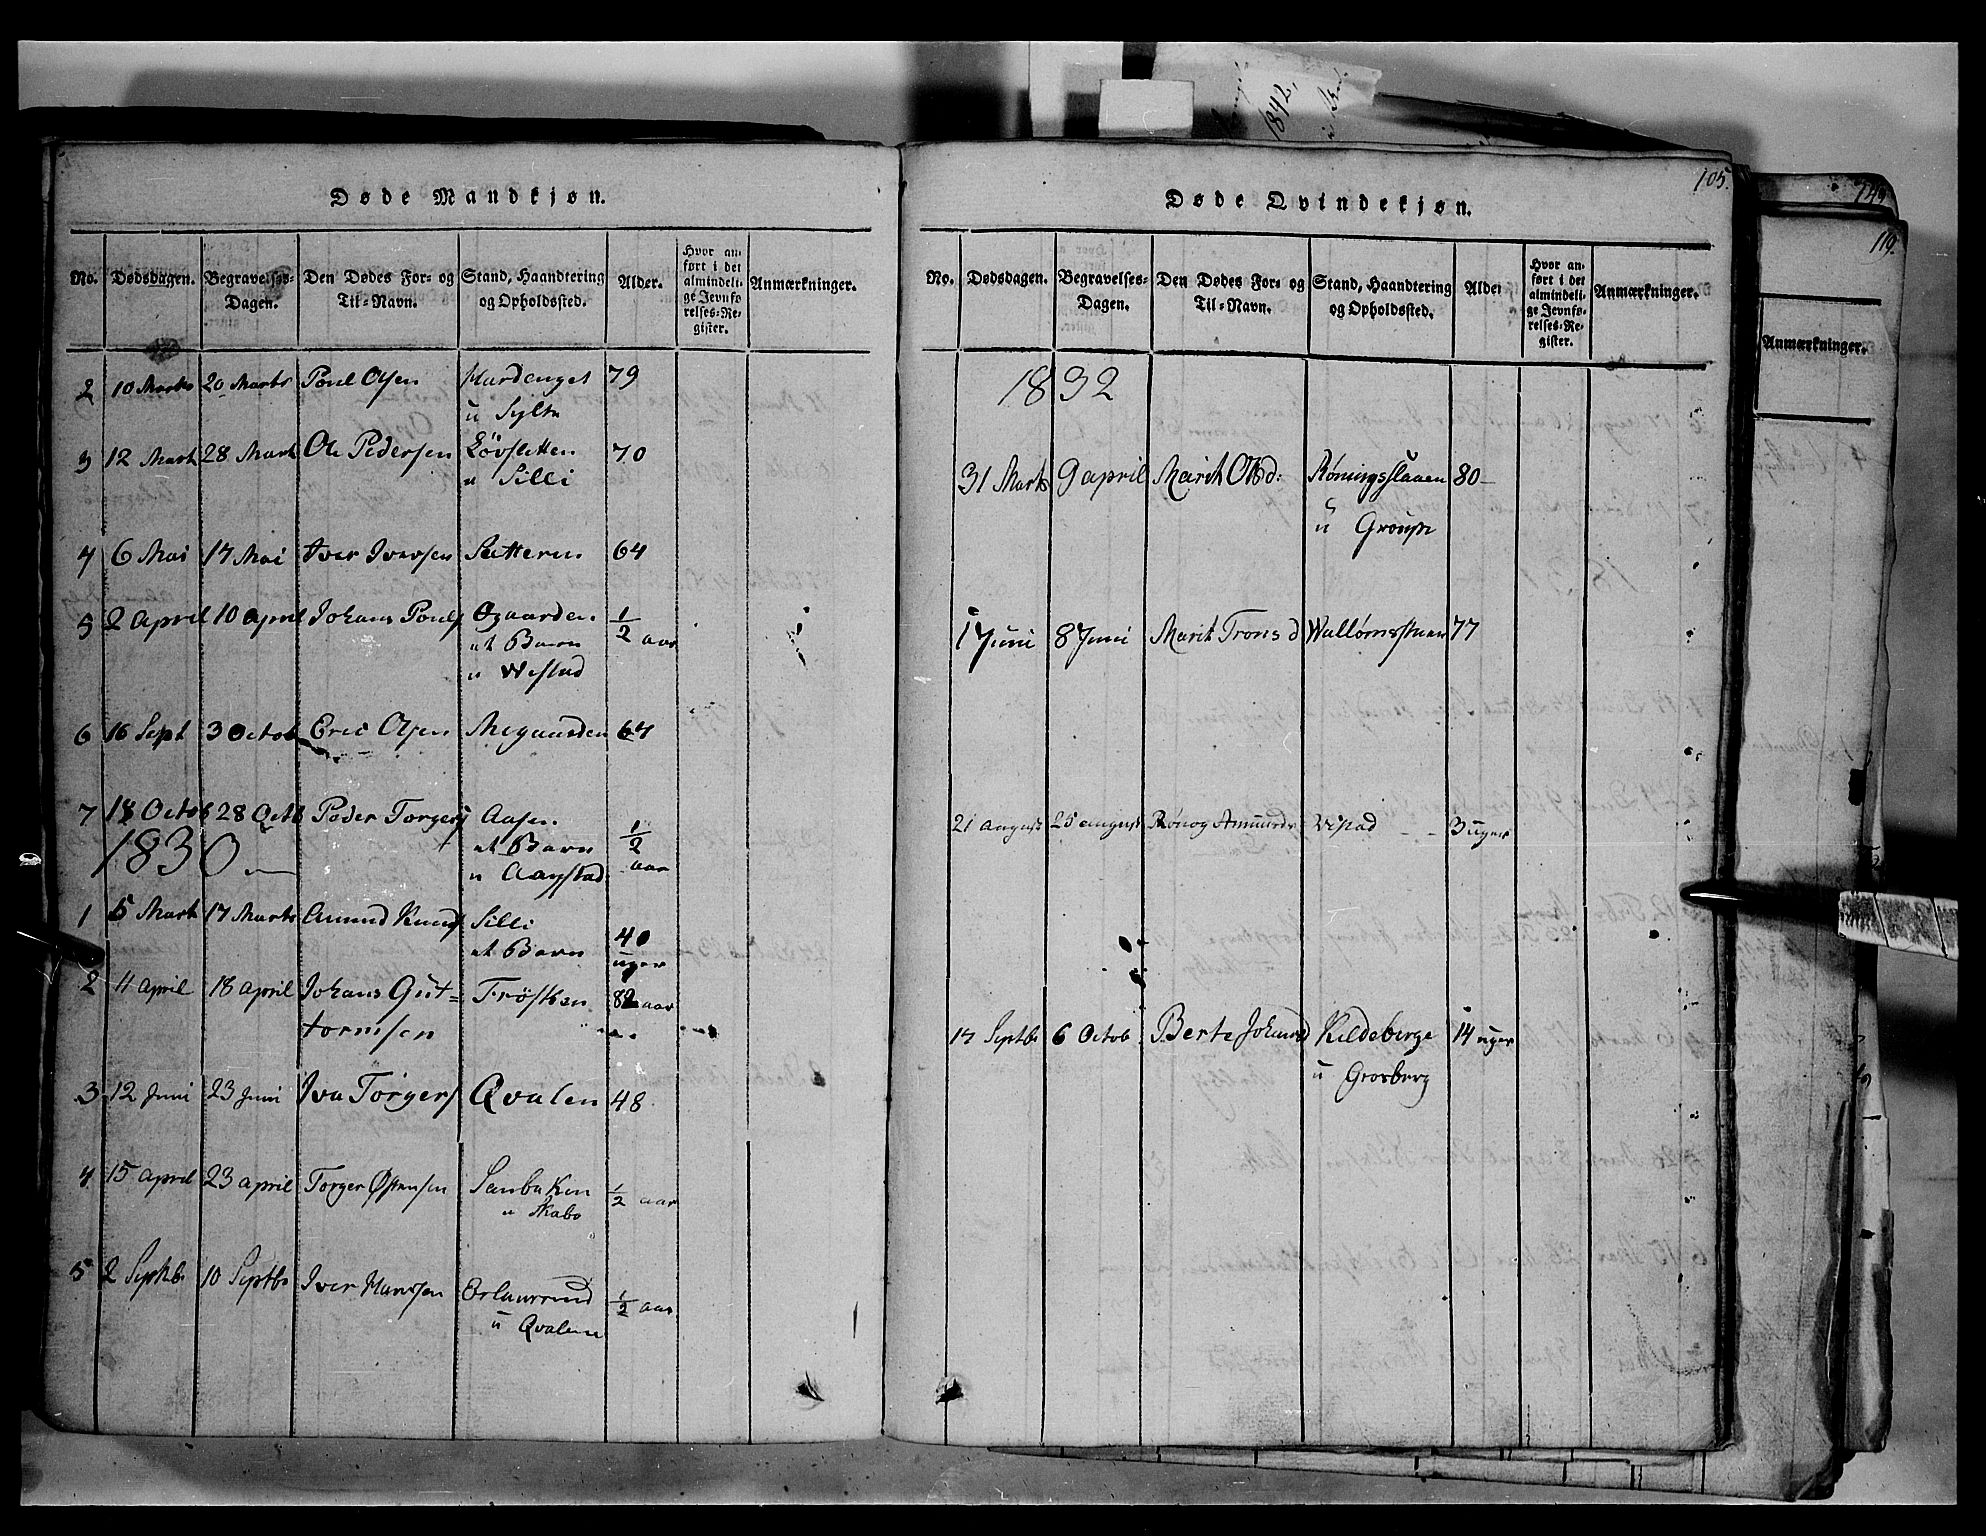 1842,
Døde Mandkjøn.
No. Dødsdagen. Begravelses-Dagen. Den Dødes For- og Til-Navn. Stand, Haandtering og Opholdssted. Alder. Hvor anført i det almindelige Jevnførelses-Register. Anmærkninger.
2 10 Marts 20 Marts Poul Olsen Hardenget 79
u Sylte
3 12 Mart 28 Mart Ole Pedersen Løvsletten 70
u Silli
4 6 Mai 17 Mai Iver Iversen Sætteren 64
5 2 April 10 April Johans Pouls Øgaarden 1/2 aar
et Barn
u Wistad
6 16 Sept 3 Octob Eric Olsen Megaarden 64
7 18 Octob 28 Octb Peder Torgers Aasen 1/2 aar
et Barn
u Aarstad
1830
1 5 Mart 17 Marts Amund Knuds Silli 40 uger
et Barn
2 11 April 18 April Johans Gut- Frösken 82 aar
tormsen
3 12 Juni 23 Juni Iva Torgers Qvalen 48
4 15 April 23 April Torger Østensen Sanbaken 1/2 aar
u Skabo
5 2 Septb 10 Septb Iver Hansen 1/2 aar
u Qvalene
105.
Døde Qvindekjøn.
No. Dødsdagen. Begravelses-Dagen. Den Dødes For- og Til-Navn. Stand, Haandtering og Opholdssted. Alder Hvor anført i det almindelige Jevnførelses-Register. Anmærkninger.
1832
31 Marts 9 april Marit Olsd: Röningsslaaen 80
u
1 Juni 8 Juni Marit Tronsd 77
21 august 25 august Rönog Amunds Vistad 3 uger
Da
17 Septb 6 Octob Berte Johansd Kildeberge 14 uger
u Grosberg
149
119.
Anmærkninger.